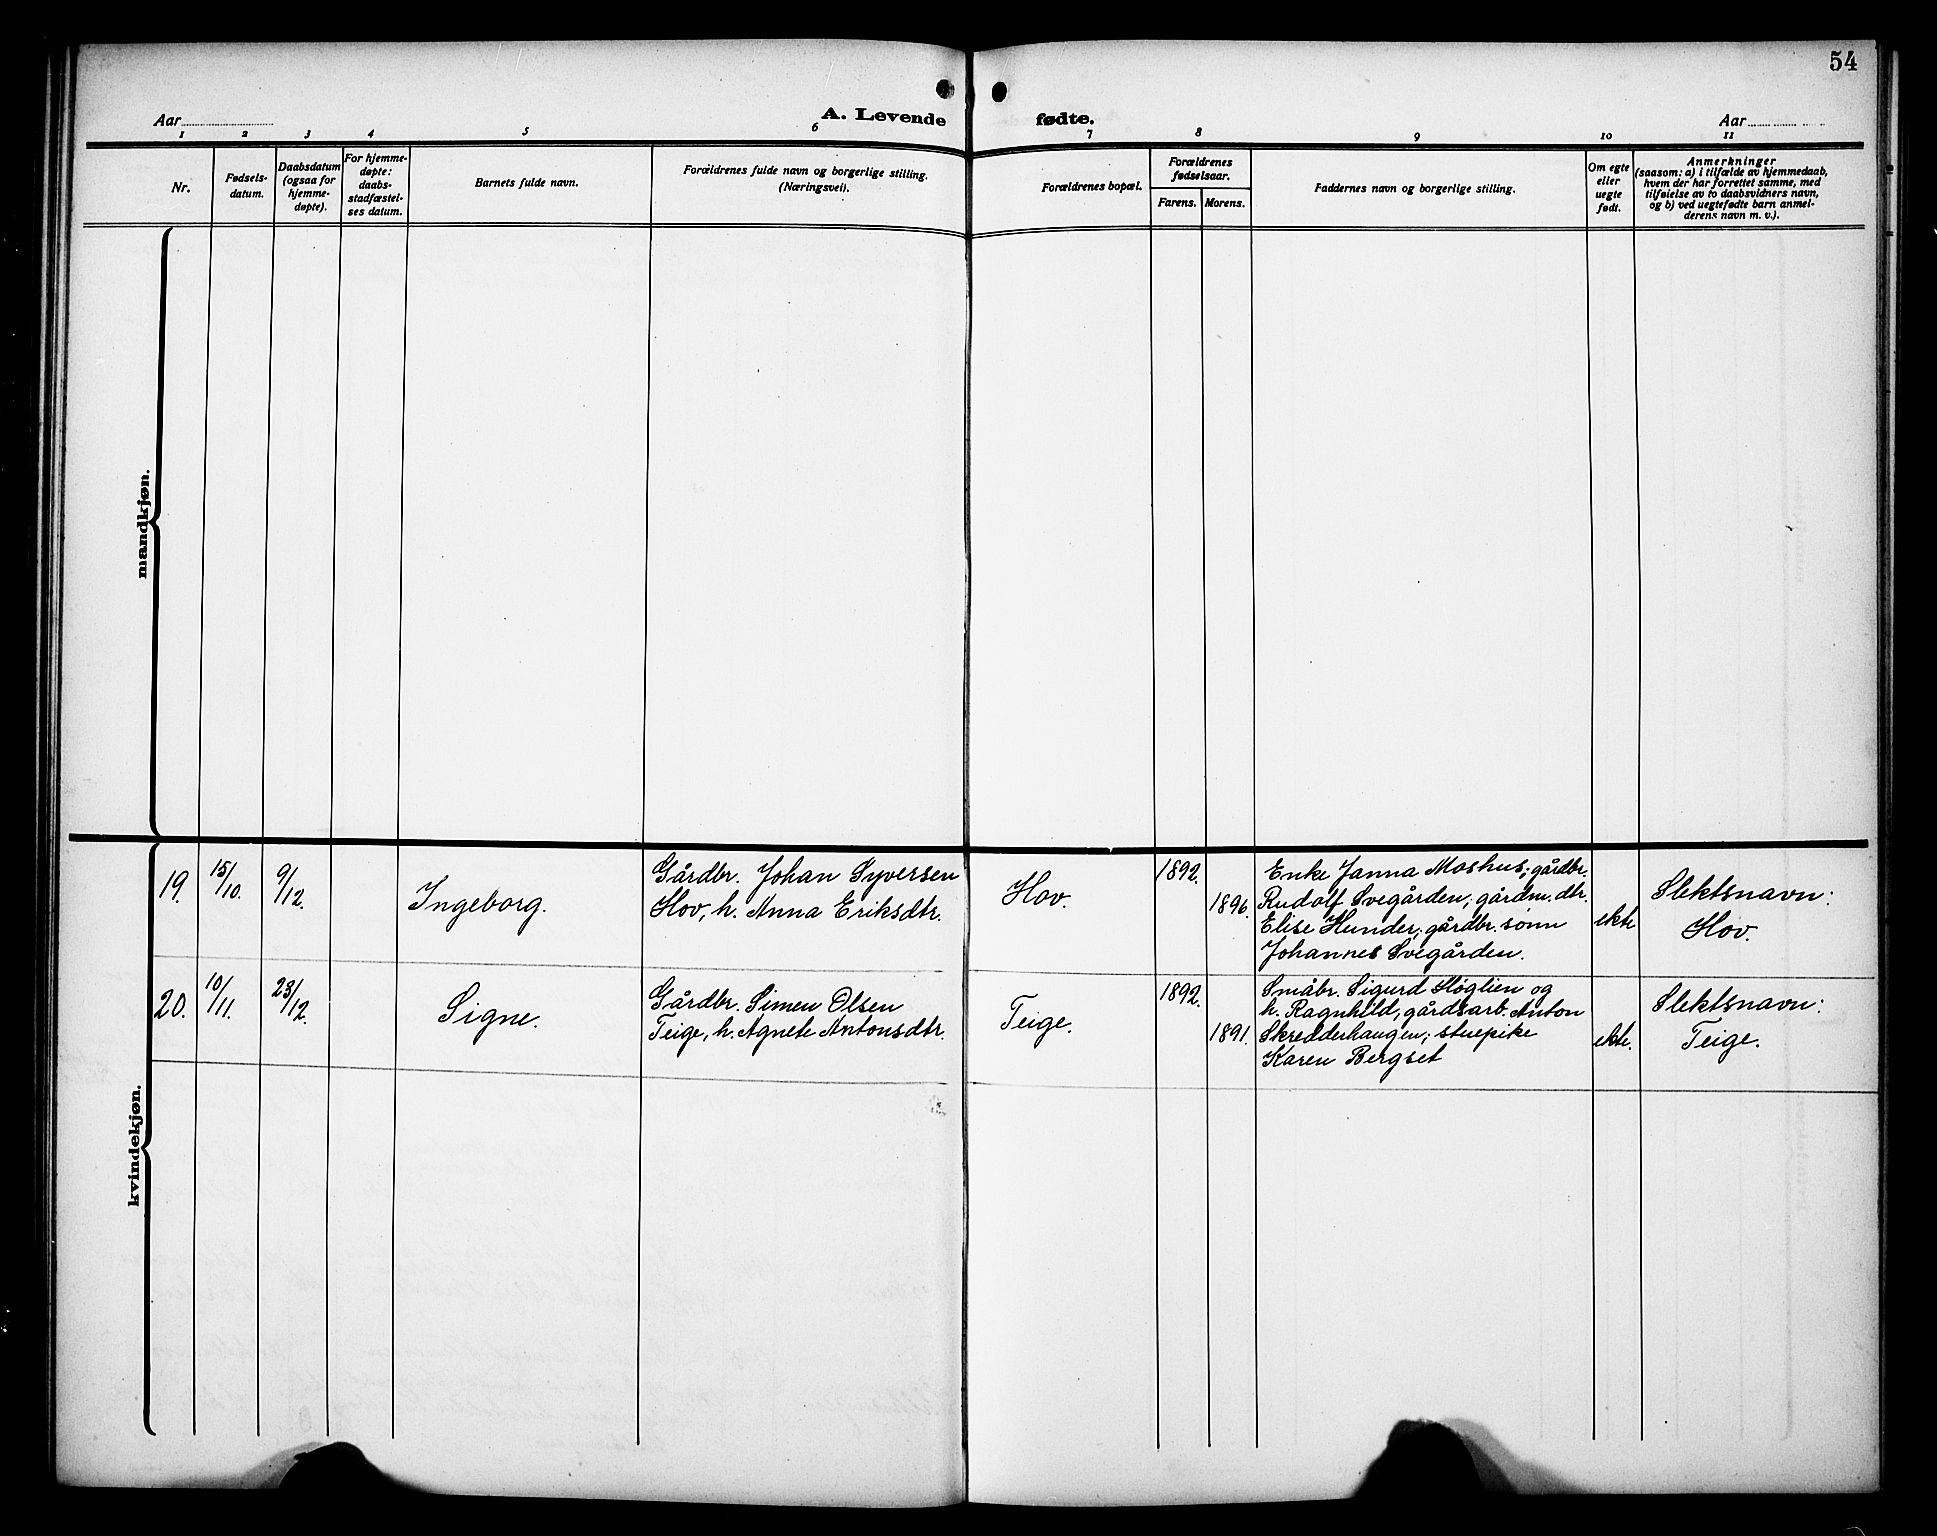 54
A. Levende fødte.
Aar
Aar
1 2 3 4 5 6 7 8 9 10 11
Nr.
Fødsels-
datum.
Daabsdatum
(ogsaa for
hjemme-
døpte).
For hjemme-
døpte:
daabs-
stadfæstel-
ses datum.
Barnets fulde navn.
Forældrenes fulde navn og borgerlige stilling.
(Næringsvei).
Forældrenes bopæl.
Forældrenes
fødselsaar.
Farens. Morens.
Faddernes navn og borgerlige stilling.
Om egte
eller
uegte
født.
Anmerkninger
(saasom: a) i tilfælde av hjemmedaab,
hvem der har forrettet samme, med
tilføielse av to daabsvidners navn,
og b) ved uegtefødte barn anmel-
derens navn m. v.).
mandkjøn.
kvindekjøn.
19.
15/10.
9/12.
Ingeborg.
Gårdbr. Johan Syversen
Hov, h. Anna Eriksdtr.
Hov.
1892.
1896.
Enke Janna Moshus; gårdbr.
Rudolf Svegården; gårdm. dtr.
Elise Hunder; gårdbr. sønn
Johannes Svegården.
ekte
Slektsnavn:
Hov.
20.
10/11.
23/12.
Signe.
Gårdbr. Simen Olsen
Teige, h. Agnete Antonsdtr.
Teige.
1892.
1891.
Småbr. Sigurd Høglien og
h. Ragnhild; gårdsarb. Anton
Skredderhaugen; stuepike
Karen Bergset
ekte.
Slektsnavn:
Teige.